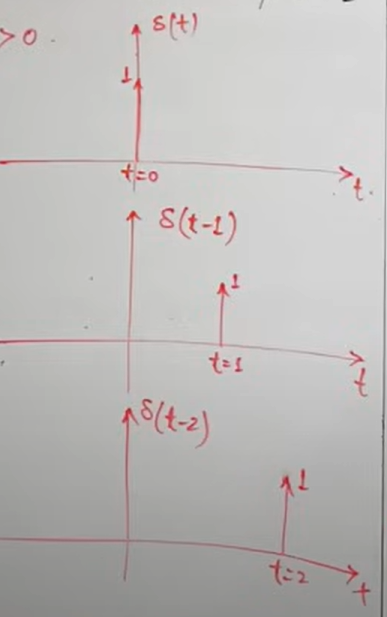 >0.
δ(t)
1
t=0
t.
δ(t-1)
1
t=1
t
δ(t-2)
1
t=2
t